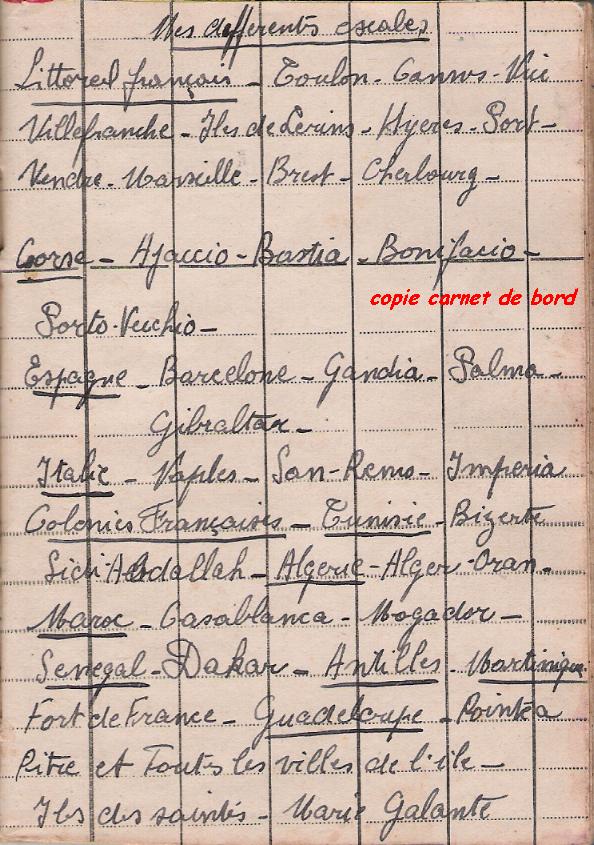 Mes differents escales
Littoral français - Toulon - Cannes - Nice
Villefranche - Iles de Lerins - Hyeres - Port-
Vendre - Marseille - Brest - Cherbourg -
Corse - Ajaccio - Bastia - Bonifacio -
copie carnet de bord
Porto-Vecchio -
Espagne - Barcelone - Gandia - Palma -
Gibraltar -
Italie - Naples - San-Remo - Imperia
Colonies Françaises - Tunisie - Bizerte
Sidi-Abdallah - Algerie - Alger - Oran -
Maroc - Casablanca - Mogador -
Senegal - Dakar - Antilles - Martinique
Fort de France - Guadeloupe - Pointe a
Pitre et Toutes les villes de l'ile -
Iles des saintes - Marie Galante